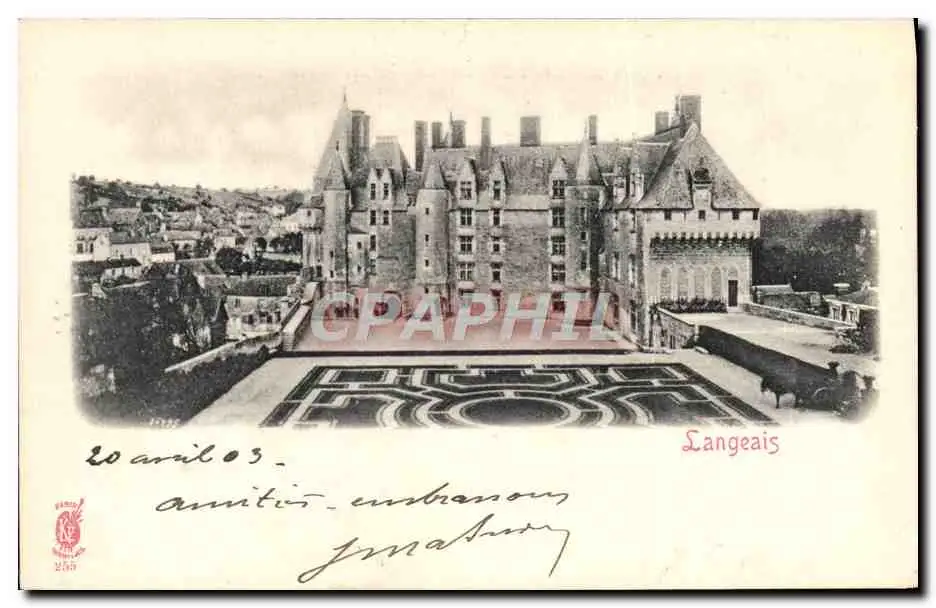 CPAPHIL
Langeais
20 avril 03 -
amitiés - embrassons
255